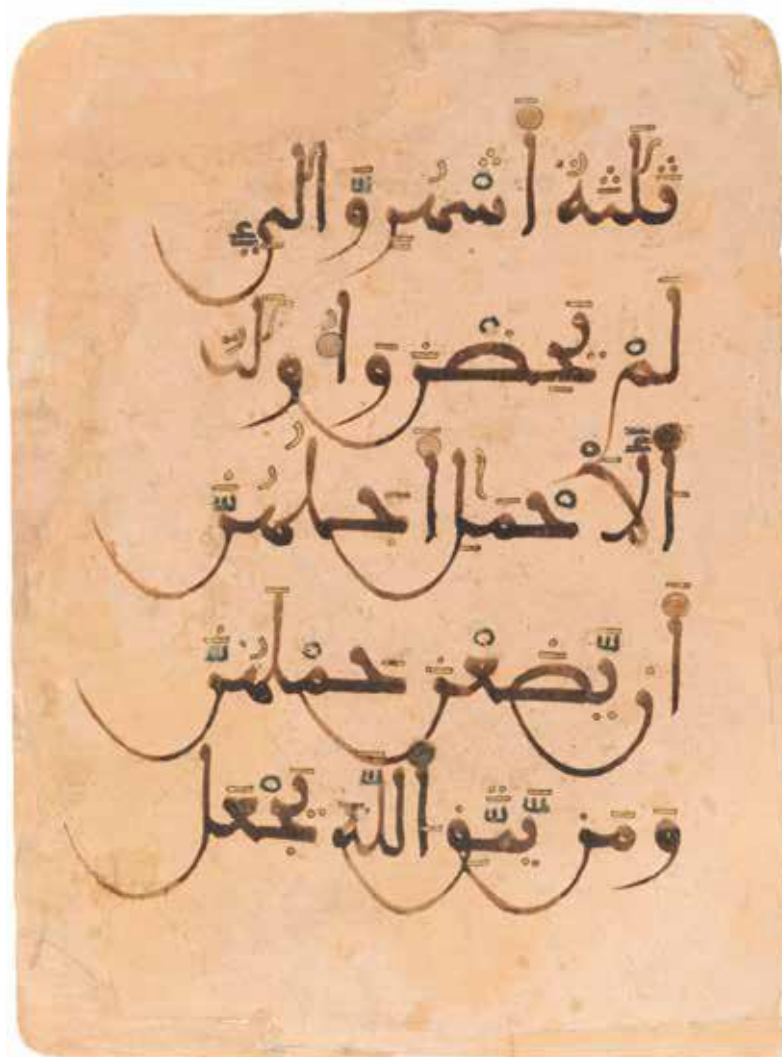 ثَلَٰثَةُ أَشْهُرٍ وَّالَّٰـِٔي
لَمْ يَحِضْنَ وَأُوْلَٰتُ
اَ۬لْأَحْمَالِ أَجَلُهُنَّ
أَنْ يَّضَعْنَ حَمْلَهُنَّ
وَمَنْ يَّتَّقِ اِ۬للَّهَ يَجْعَل